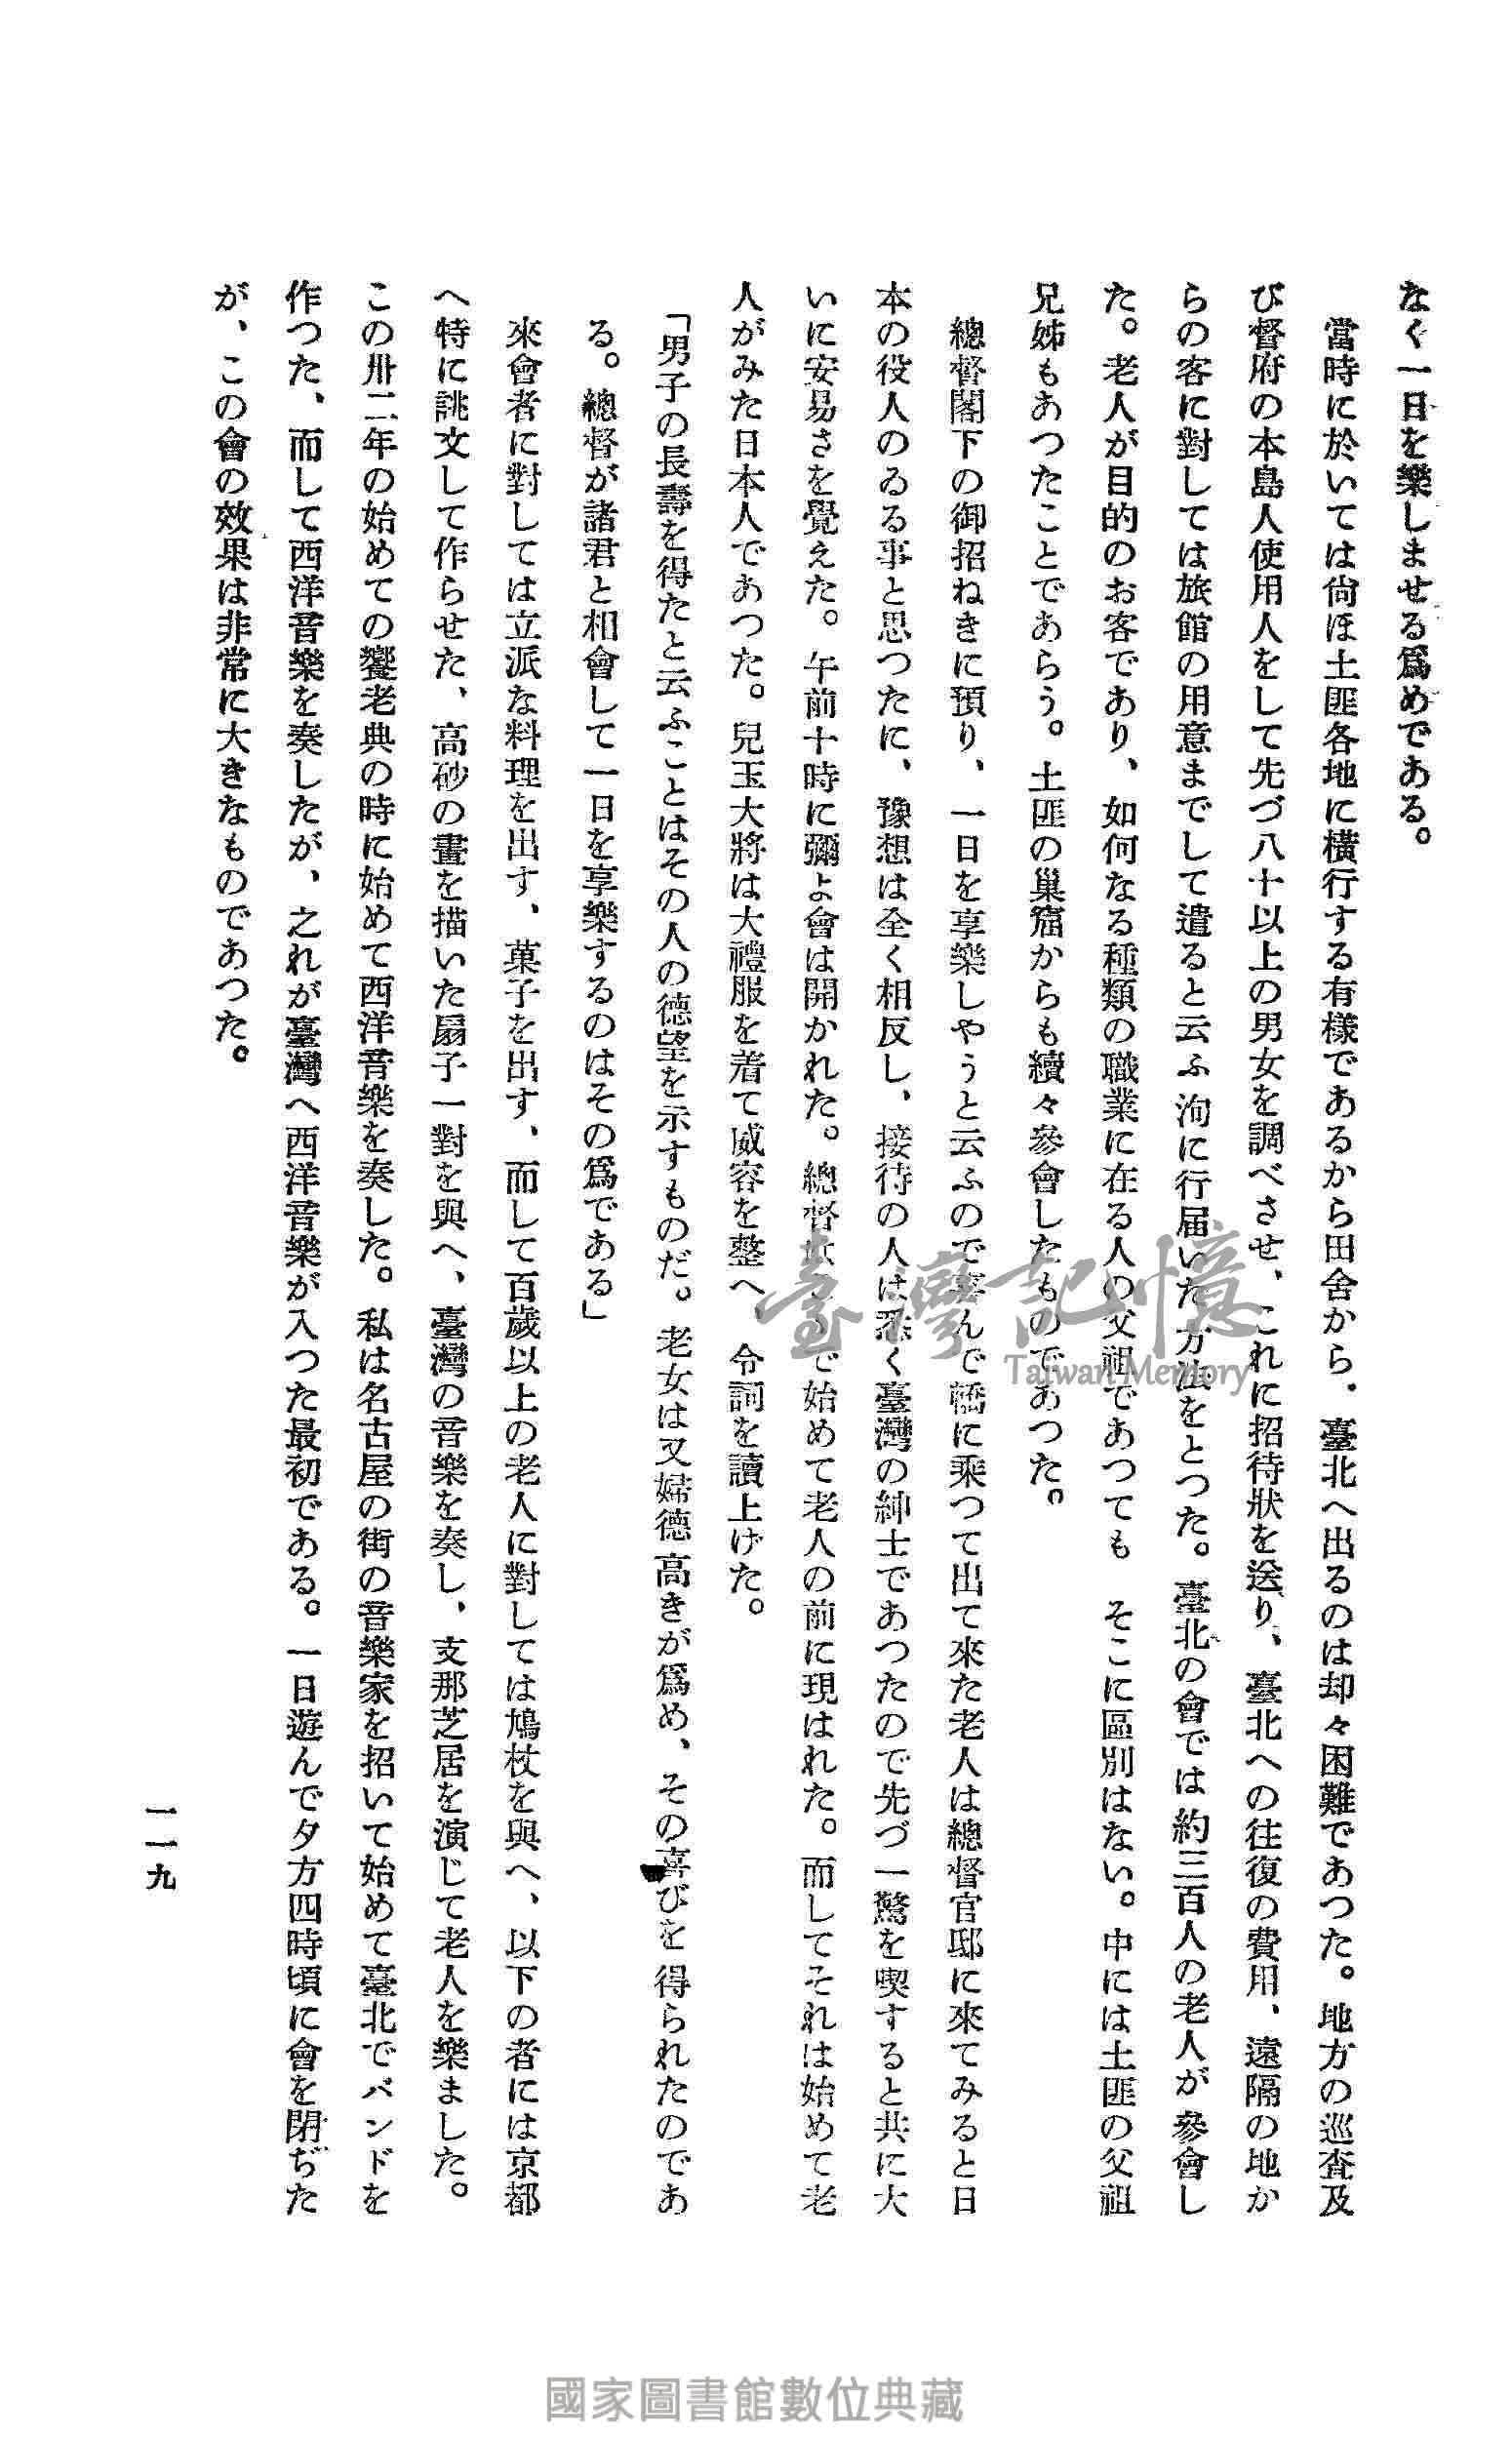 なく一日を樂しませる爲めである。
當時に於いては尙ほ土匪各地に横行する有樣であるから田舍から、臺北へ出るのは却々困難であつた。地方の巡査及
び督府の本島人使用人をして先づ八十以上の男女を調べさせ、これに招待狀を送り、臺北への往復の費用、遠隔の地か
らの客に對しては旅館の用意までして遣ると云ふ洵に行届いた方法をとつた。臺北の會では約三百人の老人が參會し
た。老人が目的のお客であり、如何なる種類の職業に在る人の父祖であつても そこに區別はない。中には土匪の父祖
兄姊もあつたことであらう。土匪の巢窟からも續々參會したものであつた。
總督閣下の御招ねきに預り、一日を享樂しやうと云ふので喜んで轎に乘つて出て來た老人は總督官邸に來てみると日
本の役人のゐる事と思つたに、豫想は全く相反し、接待の人は悉く臺灣の紳士であつたので先づ一驚を喫すると共に大
いに安易さを覺えた。午前十時に彌よ會は開かれた。總督はこゝで始めて老人の前に現はれた。而してそれは始めて老
人がみた日本人であつた。兒玉大將は大禮服を着て威容を整へ、令詞を讀上げた。
「男子の長壽を得たと云ふことはその人の德望を示すものだ。老女は又婦德高きが爲め、その喜びを得られたのであ
る。總督が諸君と相會して一日を享樂するのはその爲である」
來會者に對しては立派な料理を出す、菓子を出す、而して百歲以上の老人に對しては鳩杖を與へ、以下の者には京都
へ特に誂文して作らせた、高砂の畫を描いた扇子一對を與へ、臺灣の音樂を奏し、支那芝居を演じて老人を樂ました。
この卅二年の始めての饗老典の時に始めて西洋音樂を奏した。私は名古屋の街の音樂家を招いて始めて臺北でバンドを
作つた、而して西洋音樂を奏したが、之れが臺灣へ西洋音樂が入つた最初である。一日遊んで夕方四時頃に會を閉ぢた
が、この會の效果は非常に大きなものであつた。
一一九
臺灣記憶
Taiwan Memory
國家圖書館數位典藏